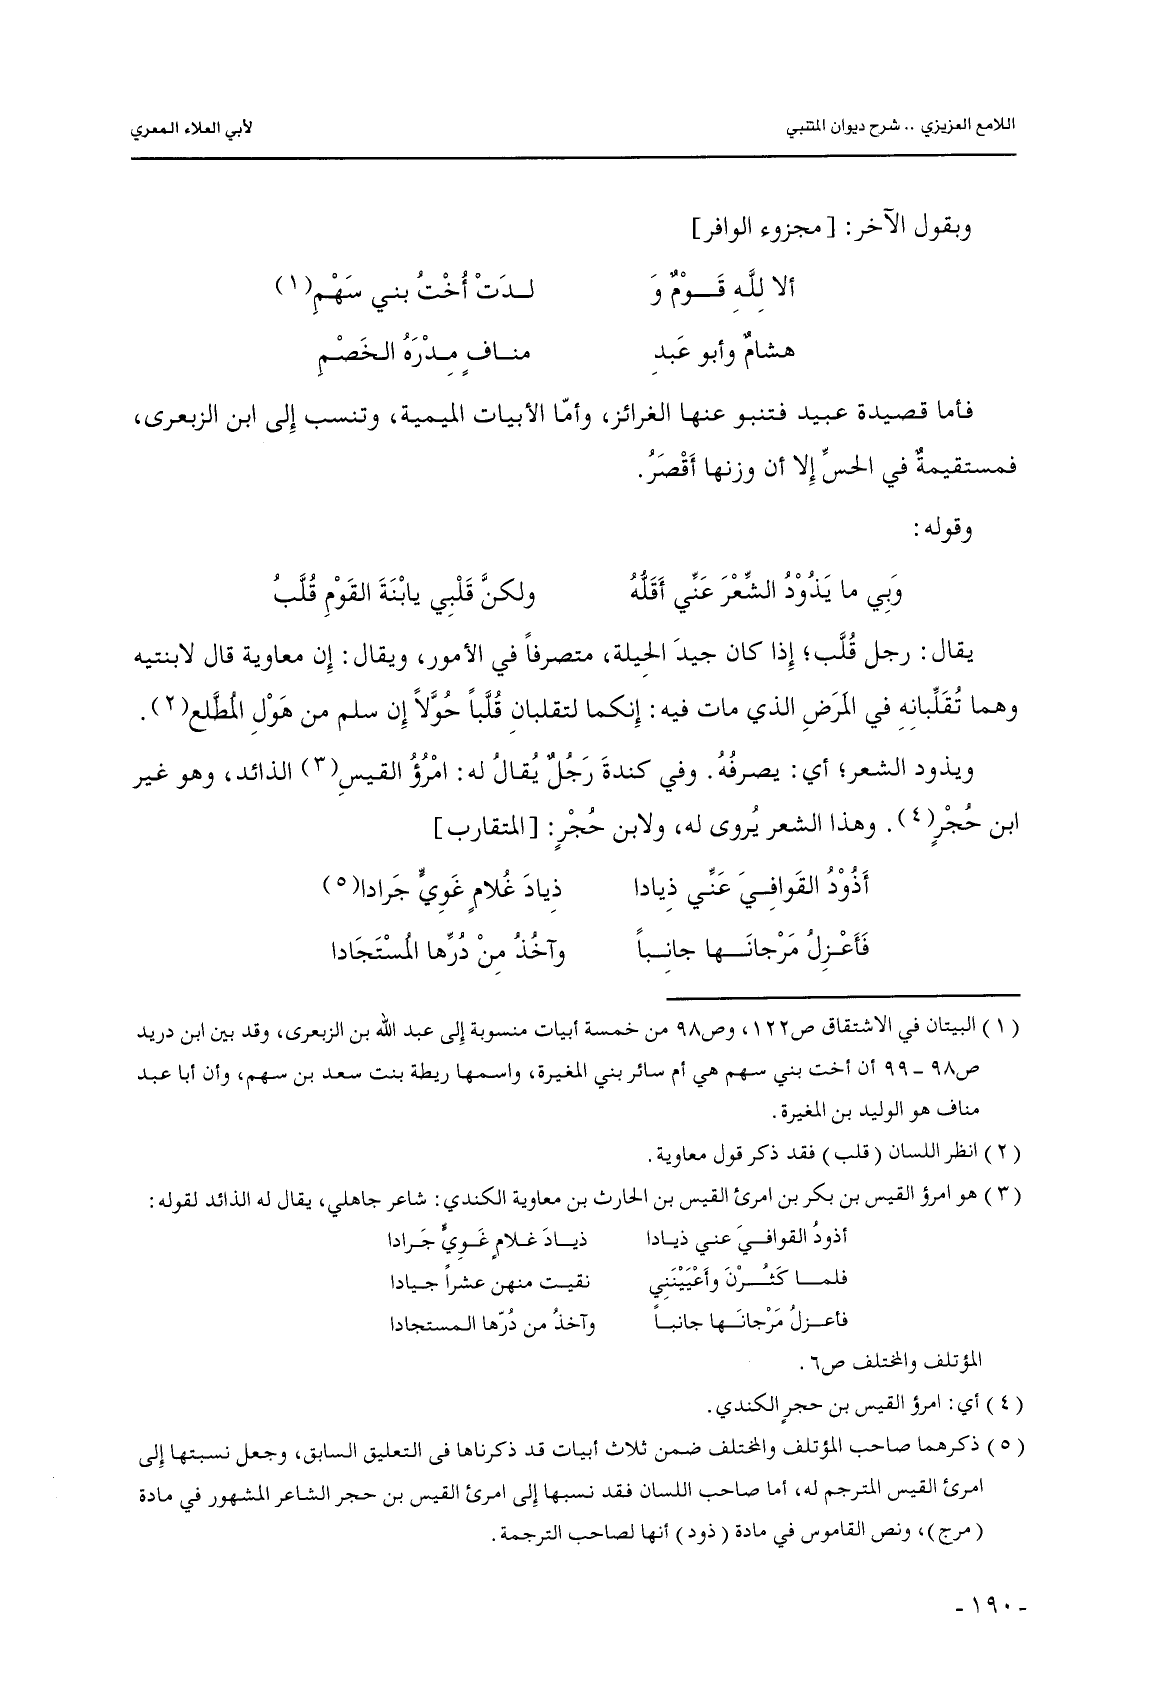 اللامع العزيزي .. شرح ديوان المتنبي لأبي العلاء المعري
وبقول الآخر: [مجزوء الوافر]
ألا لِلَّهِ قَـــوْمٌ وَ لـدَتْ أُخْتُ بني سَهْمِ(١)
هشامٌ وأبو عَبدِ منـافٍ مِـدْرَهُ الـخَصْـمِ
فأما قصيدة عبيد فتنبو عنها الغرائز، وأمّا الأبيات الميمية، وتنسب إلى ابن الزبعرى،
فمستقيمةٌ في الحسِّ إلا أن وزنها أَقْصَرُ.
وقوله:
وَبِي ما يَذُوْدُ الشِّعْرَ عَنِّي أَقَلُّهُ ولكنَّ قَلْبِي يابْنَةَ القَوْمِ قُلَّبُ
يقال: رجل قُلَّب؛ إذا كان جيدَ الحيلة، متصرفاً في الأمور، ويقال: إن معاوية قال لابنتيه
وهما تُقَلِّبانِهِ في المَرَضِ الذي مات فيه: إنكما لتقلبانِ قُلَّباً حُوَّلاً إن سلم من هَوْلِ المُطَّلع(٢).
ويذود الشعر؛ أي: يصرفُهُ. وفي كندةَ رَجُلٌ يُقالُ له: امْرُؤُ القيسِ(٣) الذائد، وهو غير
ابن حُجْرٍ(٤). وهذا الشعر يُروى له، ولابن حُجْرٍ: [المتقارب]
أَذُوْدُ القَوافِـيَ عَنِّي ذِيادا ذِيادَ غُلامٍ غَوِيٍّ جَرادا(٥)
فَأَعْـزِلُ مَرْجانَـــها جانِـباً وآخُذُ مِنْ دُرِّها المُسْتَجَادا
(١) البيتان في الاشتقاق ص١٢٢، وص٩٨ من خمسة أبيات منسوبة إلى عبد الله بن الزبعرى، وقد بين ابن دريد
ص٩٨ - ٩٩ أن أخت بني سهم هي أم سائر بني المغيرة، واسمها ريطة بنت سعد بن سهم، وأن أبا عبد
مناف هو الوليد بن المغيرة.
(٢) انظر اللسان (قلب) فقد ذكر قول معاوية.
(٣) هو امرؤ القيس بن بكر بن امرئ القيس بن الحارث بن معاوية الكندي: شاعر جاهلي، يقال له الذائد لقوله:
أذودُ القوافـيَ عني ذيـادا ذيــادَ غـلامٍ غَـوِيٍّ جَـرادا
فلمـــا كَثُــرْنَ وأَعْيَيْنَني نقيـت منهن عشراً جـيادا
فأعـزلُ مَرْجانَـها جانبـاً وآخذُ من دُرّها المستجادا
المؤتلف والمختلف ص٦.
(٤) أي: امرؤ القيس بن حجرٍ الكندي.
(٥) ذكرهما صاحب المؤتلف والمختلف ضمن ثلاث أبيات قد ذكرناها فى التعليق السابق، وجعل نسبتها إلى
امرئ القيس المترجم له، أما صاحب اللسان فقد نسبها إلى امرئ القيس بن حجر الشاعر المشهور في مادة
(مرج)، ونص القاموس في مادة (ذود) أنها لصاحب الترجمة.
- ١٩٠ -